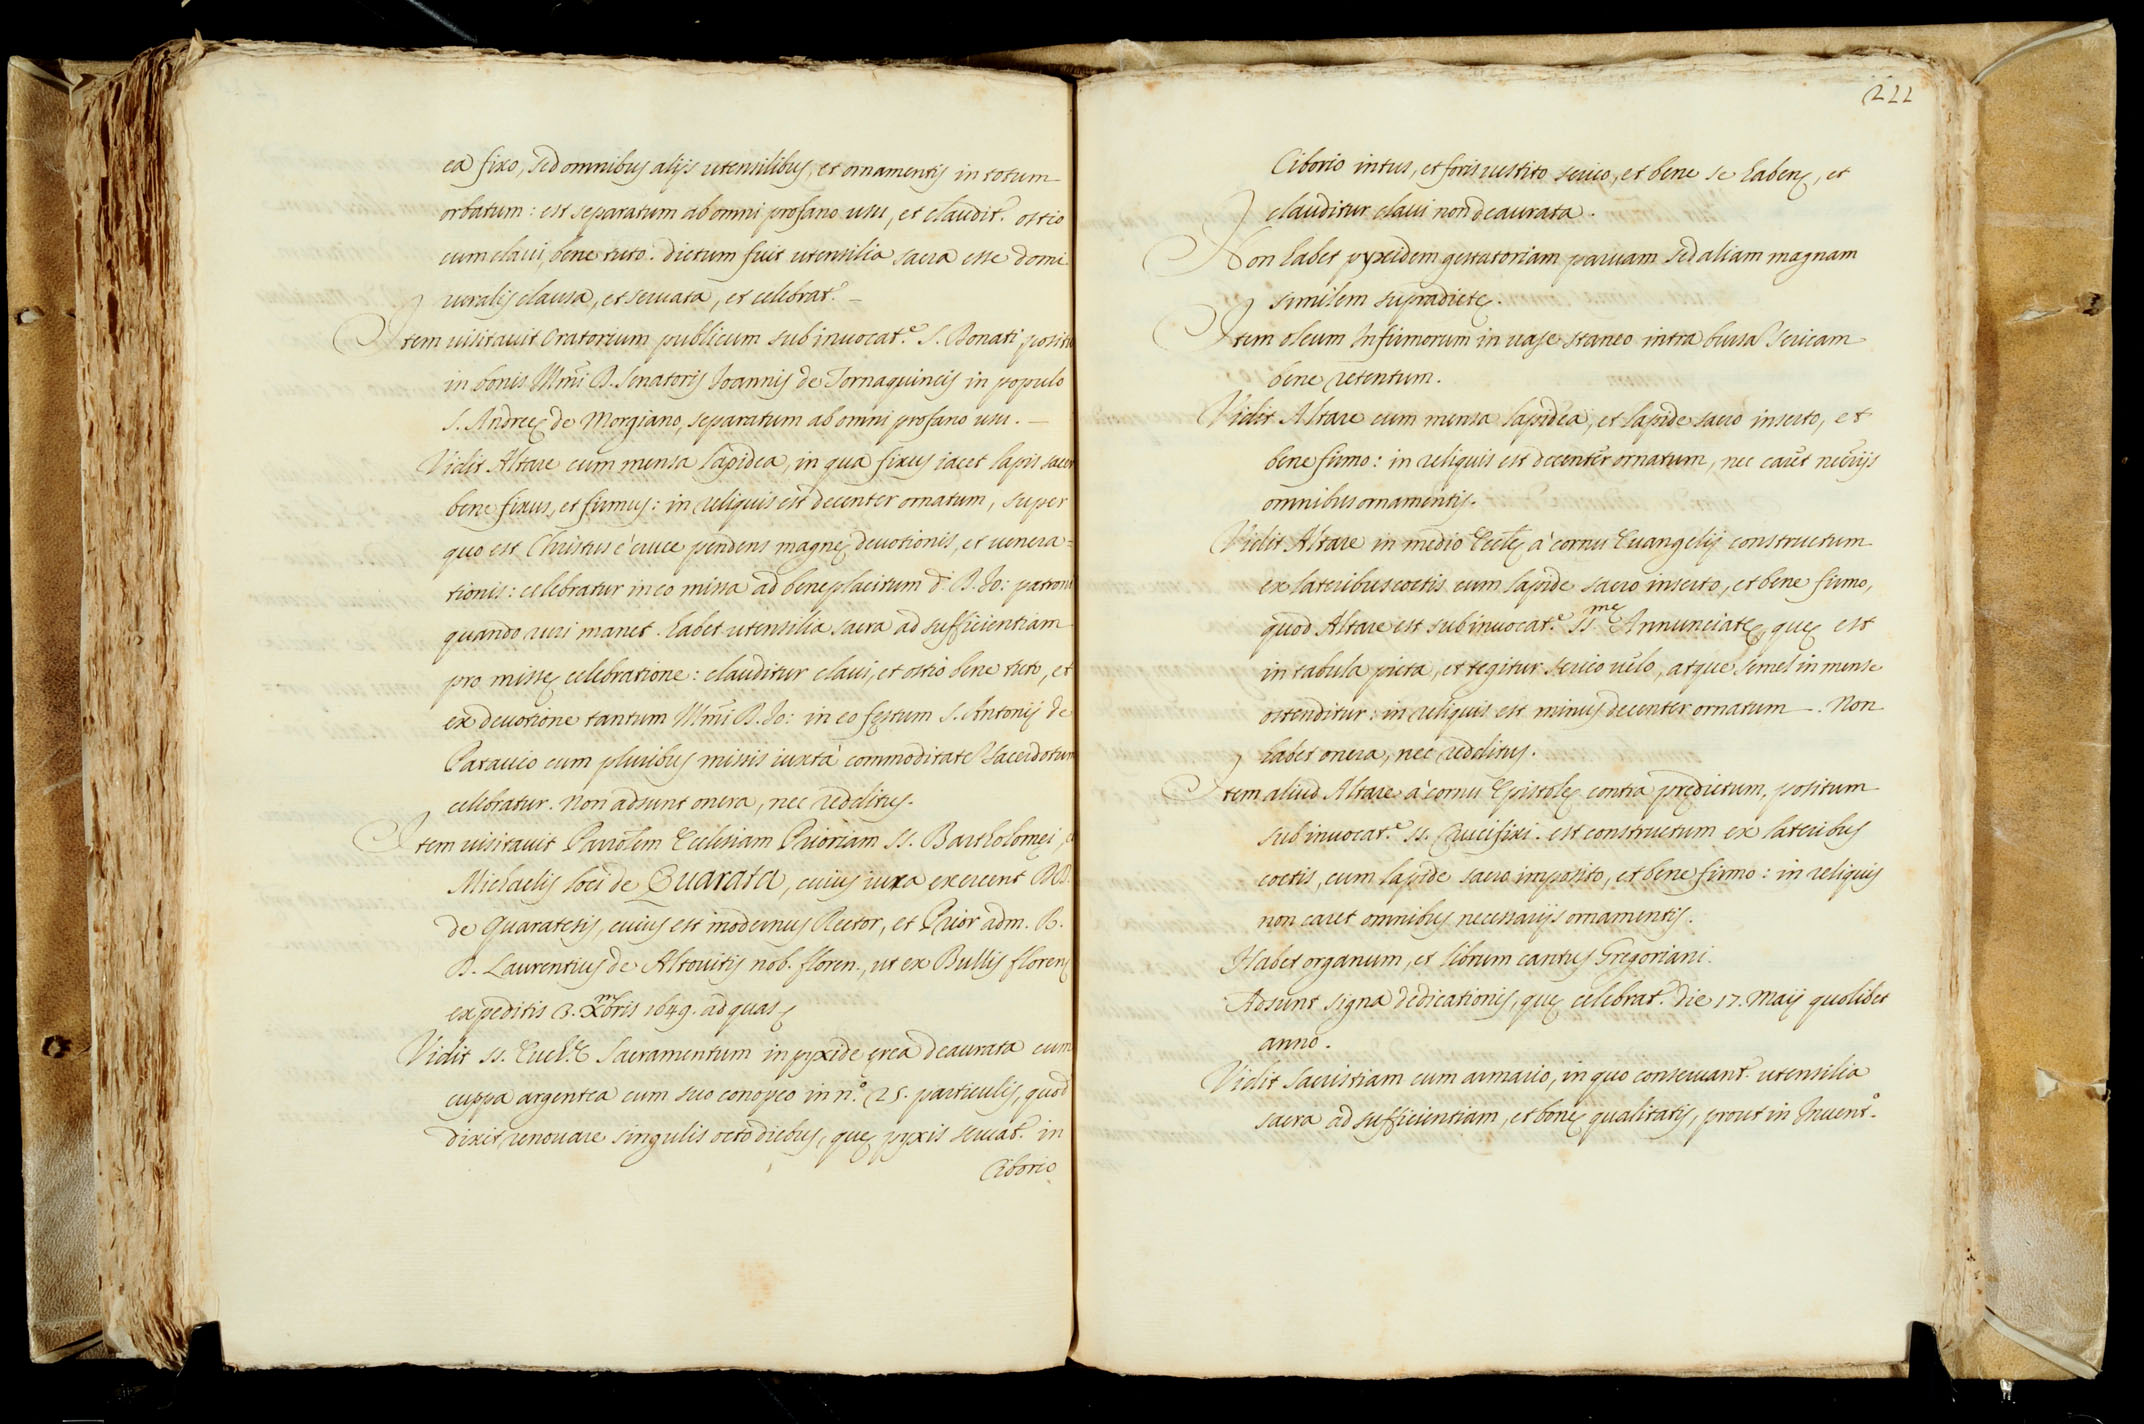 ea fixo, sed omnibus alijs utensilibus, et ornamentis in totum
orbatum: est separatum ab omni profano usu, et claudit.r ostio
cum clavi, bene tuto. dictum fuit utensilia sacra esse domi
ruralis clausa, et servata, et celebrat.r
Item visitavit Oratorium publicum sub invocat.e S. Donati, positu
in bonis Ill.mi D. Senatoris Joannis de Tornaquincis in populo
S. Andreę de Morgiano, separatum ab omni profano usu.
Vidit Altare cum mensa lapidea, in qua fixus iacet lapis sacer
bene fixus, et firmus: in reliquis est decenter ornatum, super
quo est Christus è cruce pendens magnę devotionis, et venera=
tionis: celebratur in eo missa ad beneplacitum d. D. Jo: patroni
quando ruri manet. habet utensilia sacra ad sufficientiam
pro missę celebratione: clauditur clavi, et ostio bene tuto, et
ex devotione tantum Ill.mi D. Jo: in eo festum S. Antonij de
Patavio cum pluribus missis iuxta commoditatē sacerdotum
celebratur. Non adsunt onera, nec redditus.
Item visitavit Parrōlem Ecclesiam Prioriam SS. Bartholomęi, e
Michaelis loci de Quarata, cuius iura exercent DD.
de Quaratesis, cuius est modernus Rector, et Prior adm. R.
D. Laurentius de Altovitis nob. floren., ut ex Bullis florenę
expeditis 3. Xmbris 1649. ad quas ę
Vidit SS. Euch.e Sacramentum in pyxide ęrea deaurata cum
cuppa argentea cum suo conopeo in n.o 25. particulis, quod
dixit renovare singulis octo diebus, quę pyxis servat.r in
Ciborio
222
Ciborio intus, et foris vestito serico, et bene se habenę, et
clauditur clavi non deaurata.
Non habet pyxidem gestatoriam parvam sed aliam magnam
similem supradictę.
Item oleum Infirmorum in vase staneo intra bursā sericam
bene retentum.
Vidit Altare cum mensa lapidea, et lapide sacro inserto, et
bene firmo: in reliquis est decenter ornatum, nec caret necrijs
omnibus ornamentis.
Vidit Altare in medio Eccłę à cornu Evangelij constructum
ex lateribus coctis cum lapide sacro inserto, et bene firmo,
quod Altare est sub invocat.e SS.mę Annunciatę, quę est
in tabula picta, et tegitur serico velo, atque semel in mense
ostenditur: in reliquis est minus decenter ornatum. Non
habet onera, nec redditus.
Item aliud Altare à cornu Epistolę contra prędictum, positum
sub invocat.e SS. Crucifixi. est constructum ex lateribus
coctis, cum lapide sacro imposito, et bene firmo: in reliquis
non caret omnibus necessarijs ornamentis.
Habet organum, et librum cantus Gregoriani.
Adsunt signa dedicationis, quę celebrat.r die 17. Maij quolibet
anno.
Vidit sacristiam cum armario, in quo conservant.r utensilia
sacra ad sufficientiam, et bonę qualitatis, prout in Invent.o